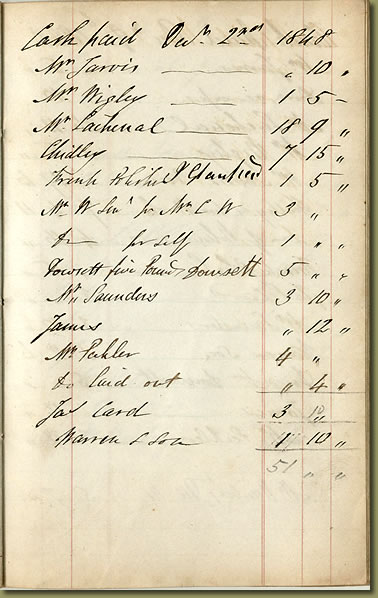 Cash paid Decr 2nd 1848
Mr Jarvis — " 10 "
Mr Wigley — 1 5 –
Mr Lachenal — 18 9 "
Chidley 7 15 "
Frank J Stanfield 1 5 "
Mr W Senr for Mr C W 3 "
do for self 1 " "
Dowsett five Pounds Dowsett 5 " "
Mr Saunders 3 10 "
James " 12 "
Mr Pichler 4 "
do laid out " 4 "
Jas Card 3 10 "
Warren & Son 1 10 "
51 " "